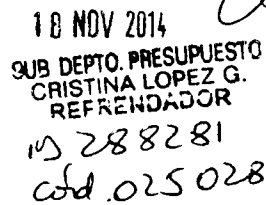 18 NOV 2014
SUB DEPTO. PRESUPUESTO
CRISTINA LOPEZ G.
REFRENDADOR
288281
cód. 025 028